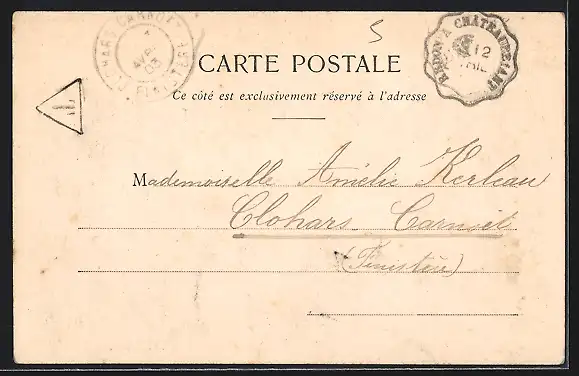 5
CLOHARS CARNOET
AVRIL
03
FINISTERE
REDON A CHATEAUBRIANT
12
AVRIL
CARTE POSTALE
Ce côté est exclusivement réservé à l'adresse
Mademoiselle Amélie Kerleau
Clohars Carnoët
(Finistère)